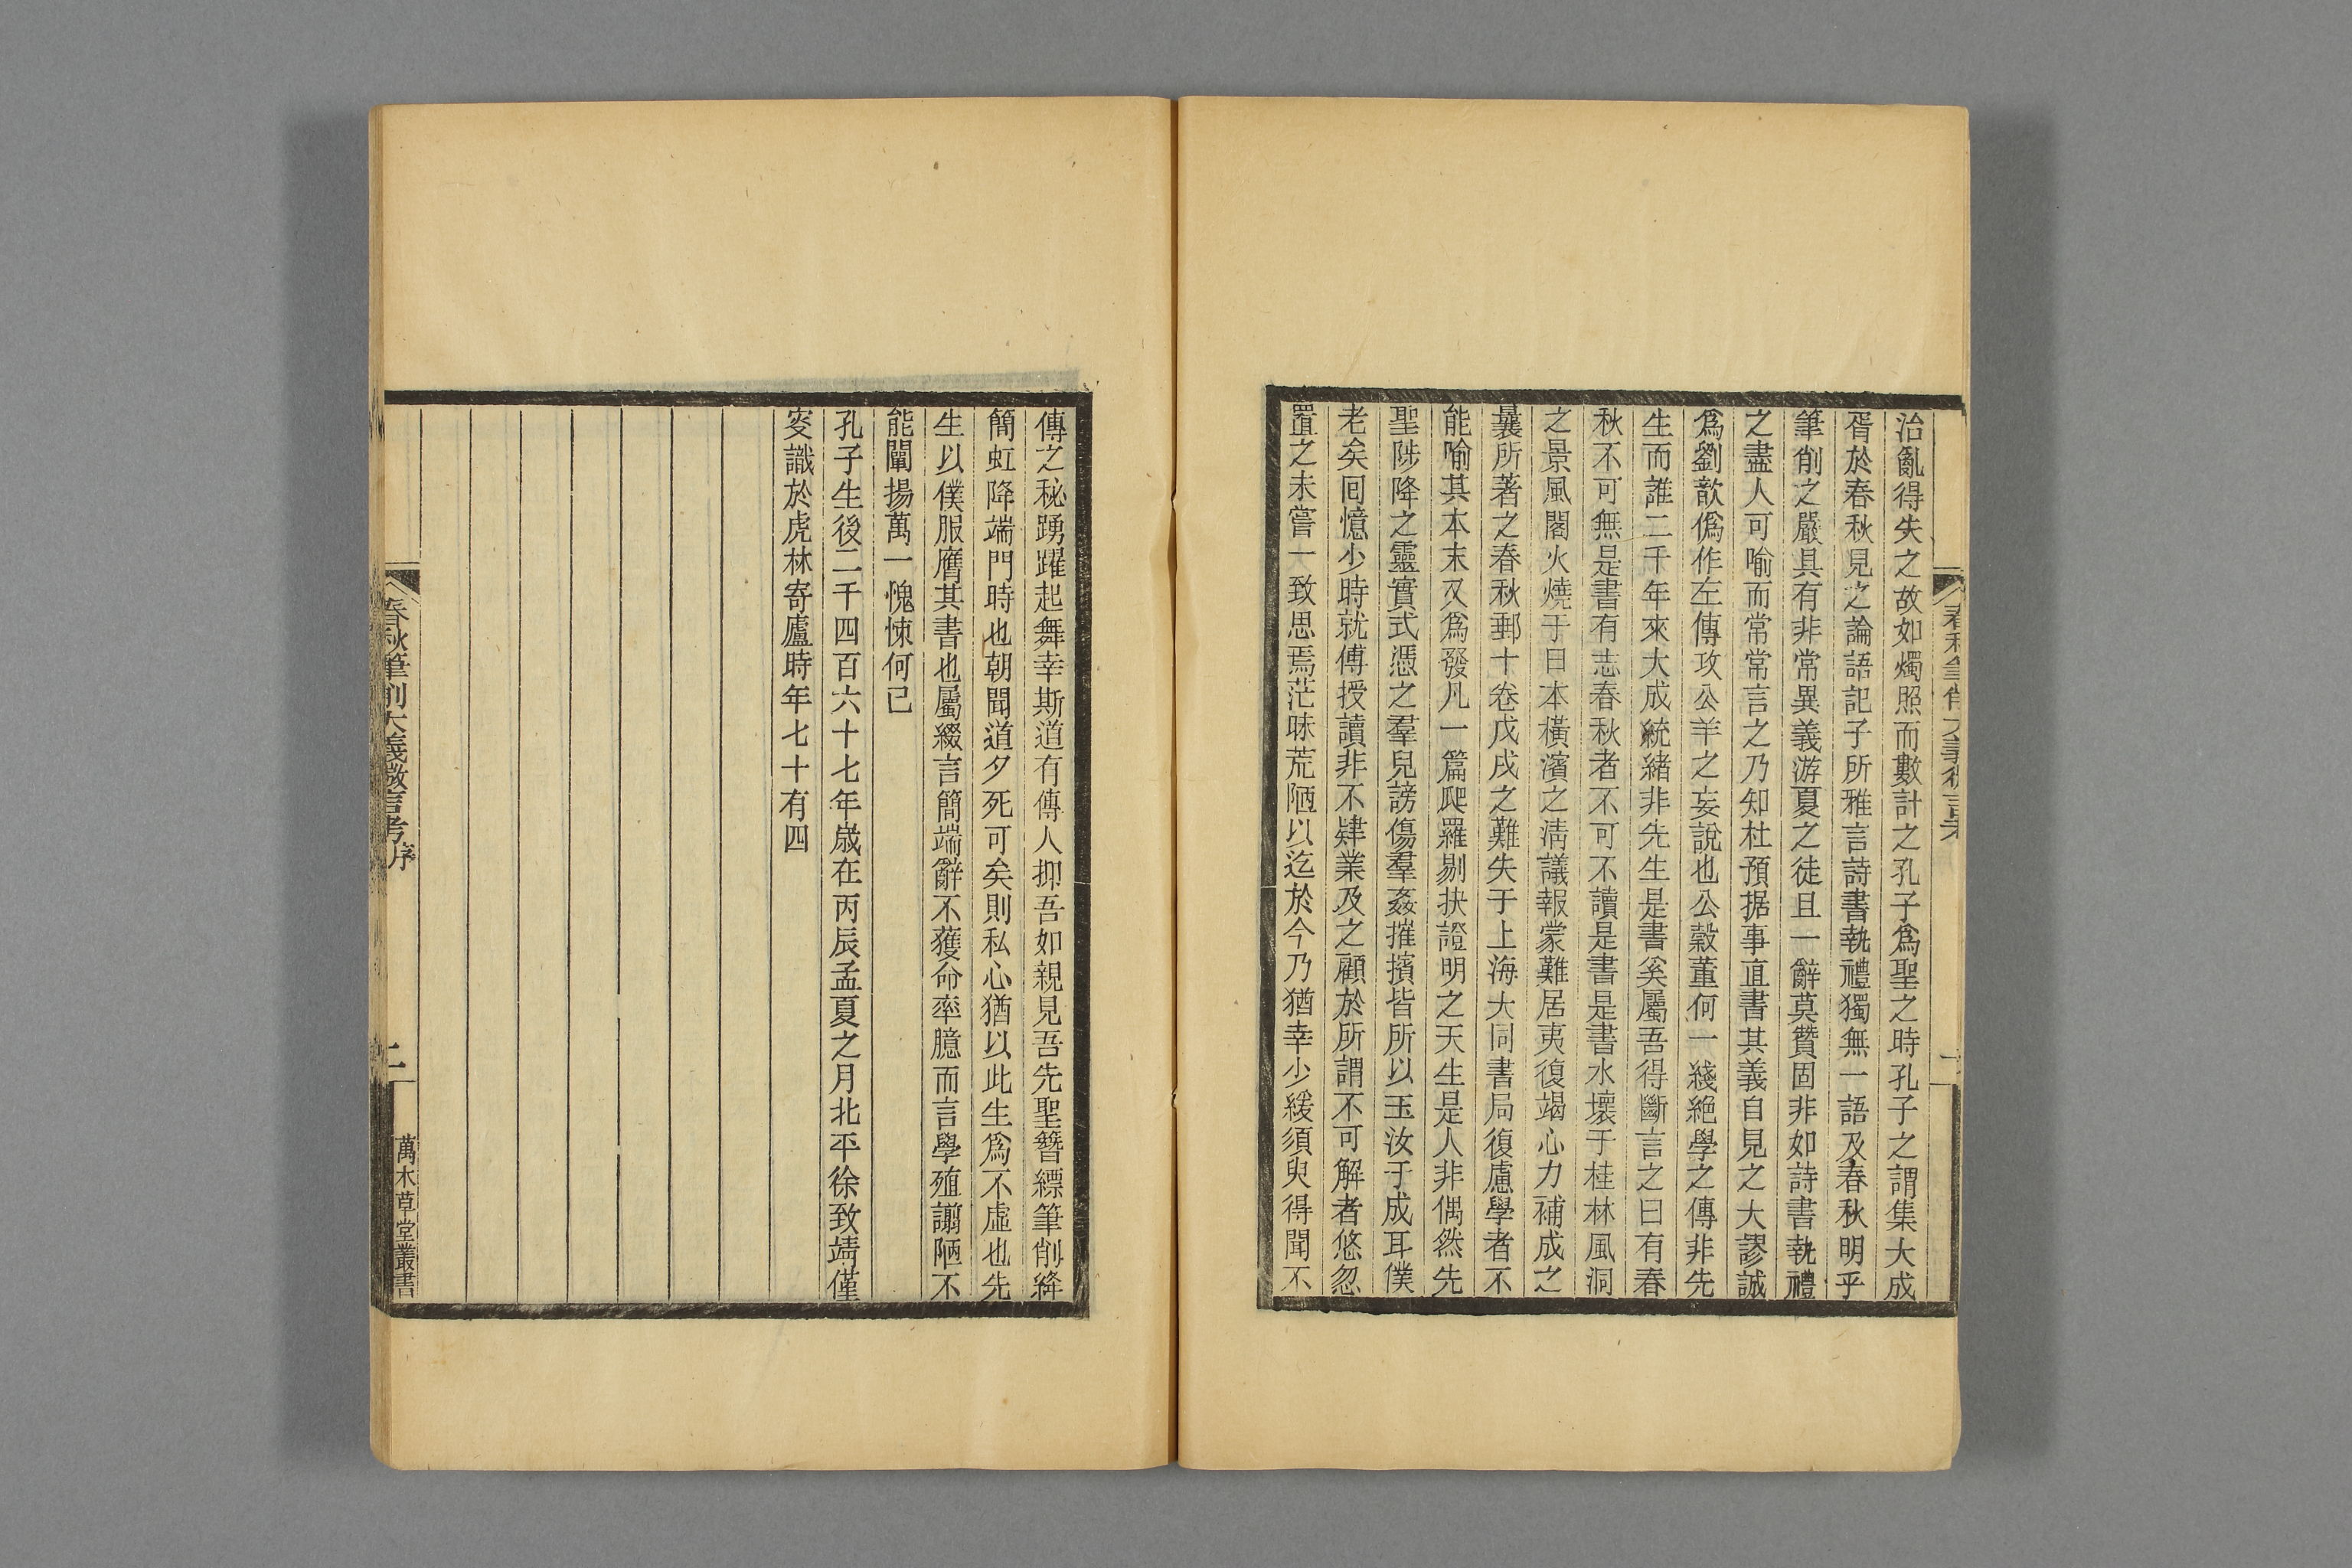 治亂得失之故如燭照而數計之孔子爲聖之時孔子之謂集大成
胥於春秋見之論語記子所雅言詩書執禮獨無一語及春秋明乎
筆削之嚴具有非常異義游夏之徒且一辭莫贊固非如詩書執禮
之盡人可喻而常常言之乃知杜預据事直書其義自見之大謬誠
爲劉歆僞作左傳攻公羊之妄說也公穀董何一綫絕學之傳非先
生而誰二千年來大成統緒非先生是書奚屬吾得斷言之曰有春
秋不可無是書有志春秋者不可不讀是書是書水壞于桂林風洞
之景風閣火燒于日本橫濱之淸議報蒙難居夷復竭心力補成之
曩所著之春秋郵十卷戊戌之難失于上海大同書局復慮學者不
能喻其本末又爲發凡一篇爬羅剔抉證明之天生是人非偶然先
聖陟降之靈實式憑之羣兒謗傷羣姦摧擯皆所以玉汝于成耳僕
老矣回憶少時就傅授讀非不肄業及之顧於所謂不可解者悠忽
置之未嘗一致思焉茫昧荒陋以迄於今乃猶幸少緩須臾得聞不
傳之秘踴躍起舞幸斯道有傳人抑吾如親見吾先聖簪縹筆削絳
簡虹降端門時也朝聞道夕死可矣則私心猶以此生爲不虛也先
生以僕服膺其書也屬綴言簡端辭不獲命率臆而言學殖謭陋不
能闡揚萬一愧悚何已
孔子生後二千四百六十七年歲在丙辰孟夏之月北平徐致靖僅
叜識於虎林寄廬時年七十有四
春秋筆削大義微言考序
二
萬木草堂叢書